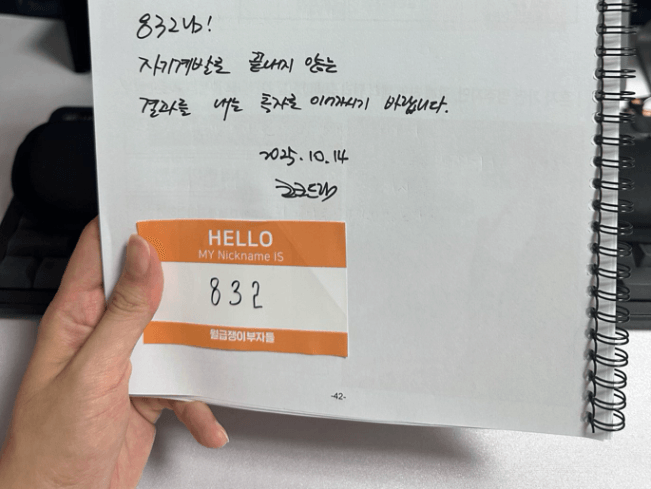 832님!
자기계발로 끝나지 않는
결과를 내는 투자로 이어가시기 바랍니다.
2025.10.14
HELLO
MY Nickname IS
832
월급쟁이부자들
-42-